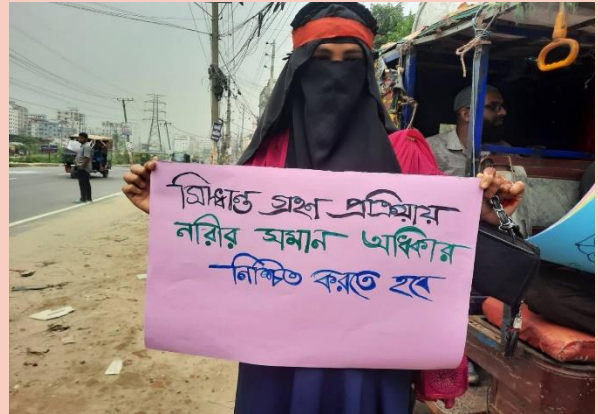 সিদ্ধান্ত গ্রহণ প্রক্রিয়ায়
নারীর সমান অধিকার
নিশ্চিত করতে হবে